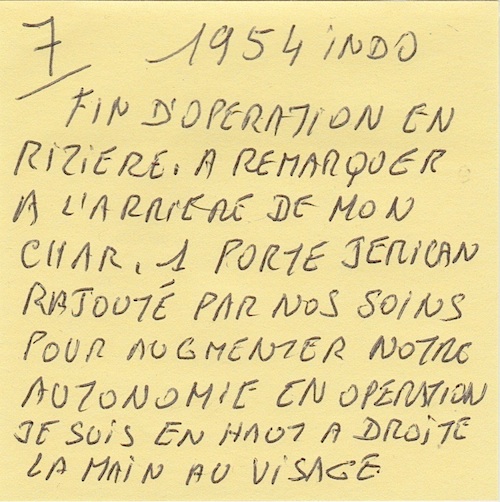 7 1954 INDO
FIN D'OPERATION EN
RIZIERE. A REMARQUER
A L'ARRIERE DE MON
CHAR, 1 PORTE JERICAN
RAJOUTÉ PAR NOS SOINS
POUR AUGMENTER NOTRE
AUTONOMIE EN OPERATION
JE SUIS EN HAUT A DROITE
LA MAIN AU VISAGE